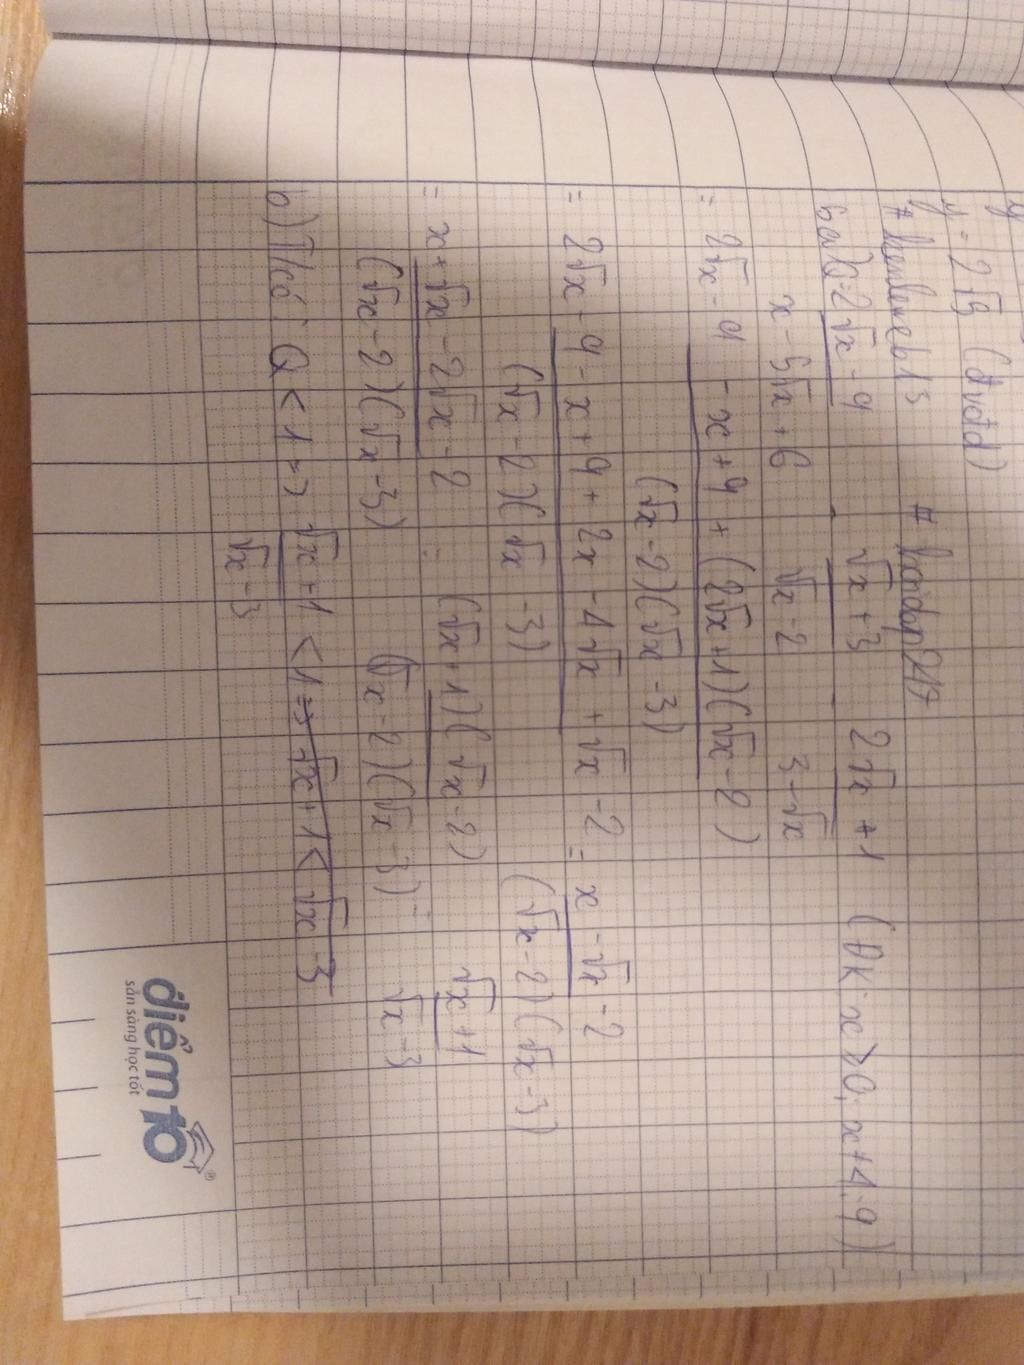 y = 2√5 (dvđd)
# baitap217
6 a) Q = 2√x - 9 / x - 5√x + 6 - √x + 3 / √x - 2 - 2√x + 1 / 3 - √x (ĐK: x ≥ 0; x ≠ 4; 9)
= 2√x - 9 - x + 9 + (2√x + 1)(√x - 2) / (√x - 2)(√x - 3)
= 2√x - 9 - x + 9 + 2x - 4√x + √x - 2 / (√x - 2)(√x - 3) = x - √x - 2 / (√x - 2)(√x - 3)
= x + √x - 2√x - 2 / (√x - 2)(√x - 3) = (√x + 1)(√x - 2) / (√x - 2)(√x - 3) = √x + 1 / √x - 3
b) Tacó: Q < 1 => √x + 1 / √x - 3 < 1 => √x + 1 < √x - 3
điểm 10
sẵn sàng học tốt
®